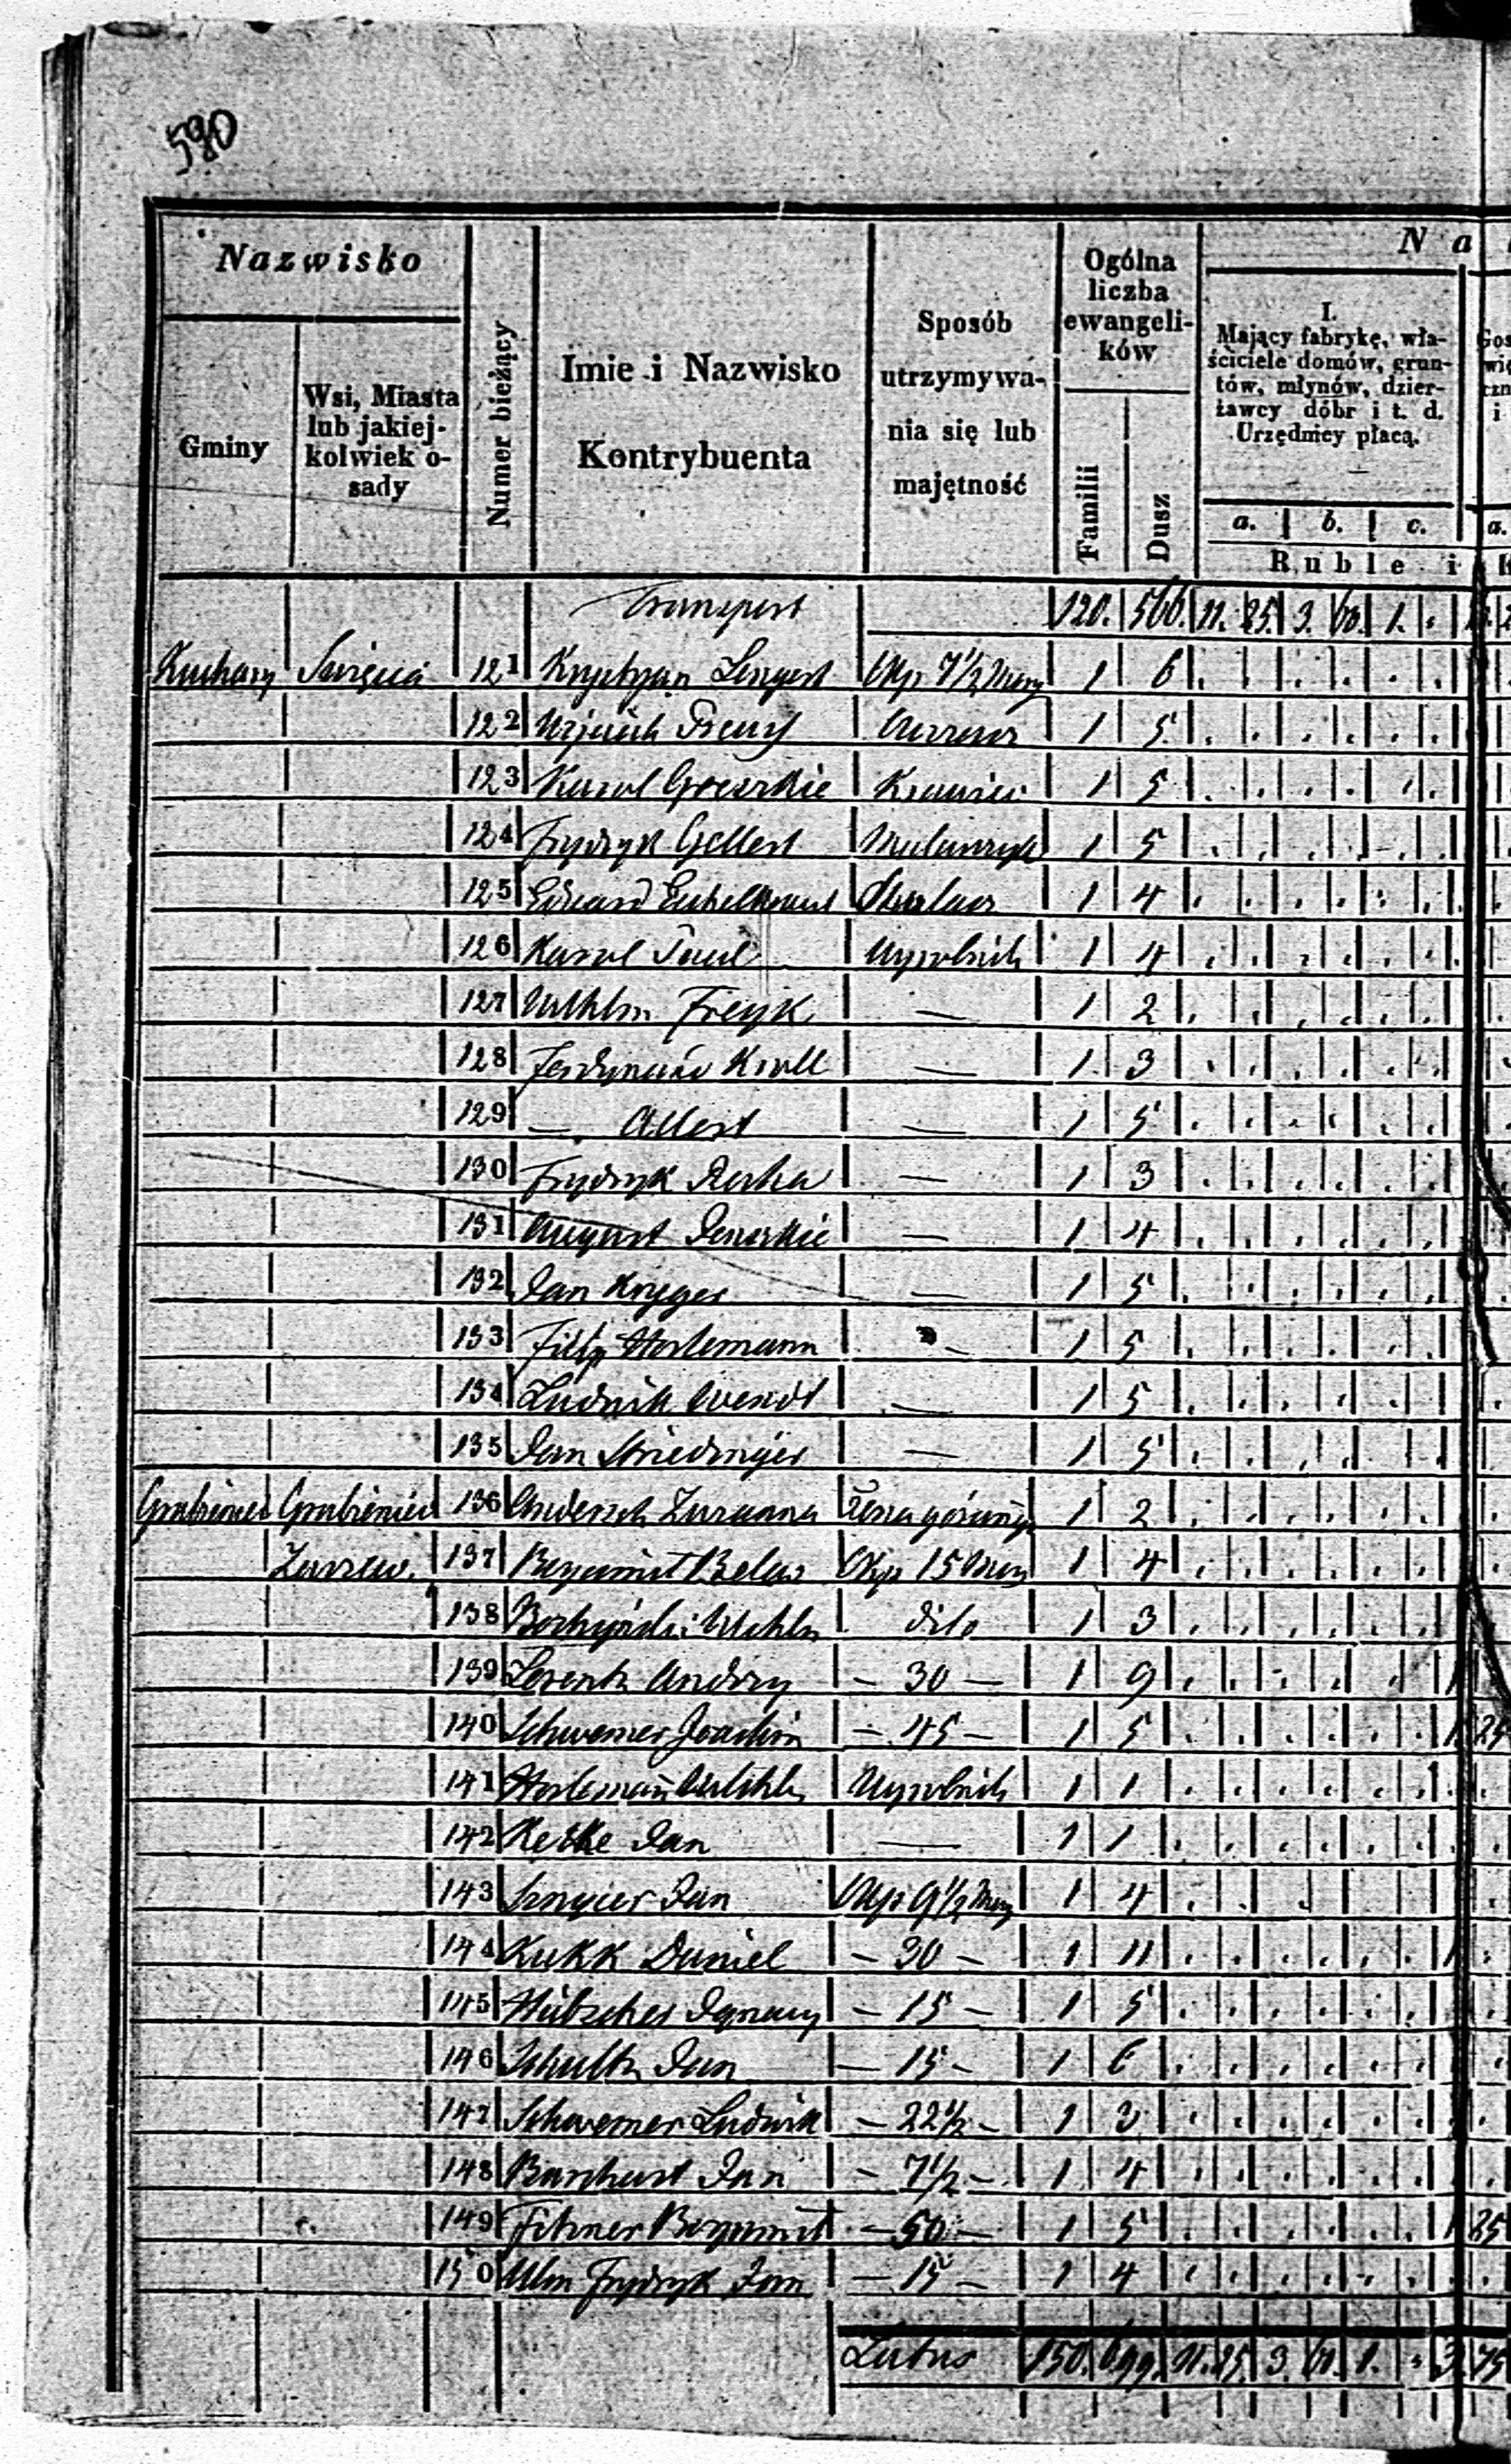 590
Nazwisko
Gminy
Wsi, Miasta
lub jakiej-
kolwiek o-
sady
Numer bieżący
Imie i Nazwisko
Kontrybuenta
Sposób
utrzymywa-
nia się lub
majętność
Ogólna
liczba
ewangeli-
ków
Familii
Dusz
Na
I.
Mający fabrykę, wła-
ściciele domów, grun-
tów, młynów, dzier-
żawcy dóbr i t. d.
Urzędnicy płacą.
a. b. c.
a.
Ruble i
Transport 120. 566. 11. 25. 3. 60. 1.
Kuchary Święcia 121 Krystyjan Lengert Okp 7½ Morg 1 6
122 Wojciech 1 5
123 Karol Greszkie Krawiec 1 5
124 Frydryk Gellert 1 5
125 Edward 1 4
126 Karol Paul Wyrobnik 1 4
127 Wilhlm Freyk — 1 2
128 Ferdynand Kroll — 1 3
129 — Allert — 1 5
130 Frydryk — 1 3
131 August — 1 4
132 Jan Kryger — 1 5
133 Filip Horlemann — 1 5
134 Ludwik Wendt — 1 5
135 Jan — 1 5
Grabieniec Grabieniec 136 Zuzanna 1 2
137 Bogumił Okp 15 Morg 1 4
138 Wilhlm dito 1 3
139 Lorentz Andrzy — 30 — 1 9
140 Schwemer Joachim — 45 — 1 5 25
141 Horleman Wilhlm Wyrobnik 1 1
142 Retke Jan — 1 1
143 Jan Okp 9½ Morg 1 4
144 Kukk Daniel — 30 — 1 11
145 Hübscher Ignacy — 15 — 1 5
146 Schultz Jan — 15 — 1 6
147 Schwemer Ludwik — 22½ — 1 3
148 Jan — 7½ — 1 4
149 Fitzner Bogumił — 50 — 1 5 25
150 Ulm Frydryk Jan — 15 — 1 4
Latus 150. 699. 11. 25. 3. 60. 1. 3. 75